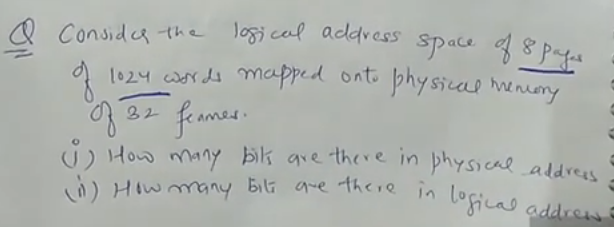 Q Consider the logical address space of 8 pages
of 1024 words mapped onto physical memory
of 32 frames.
(i) How many bits are there in physical address
(ii) How many bits are there in logical address